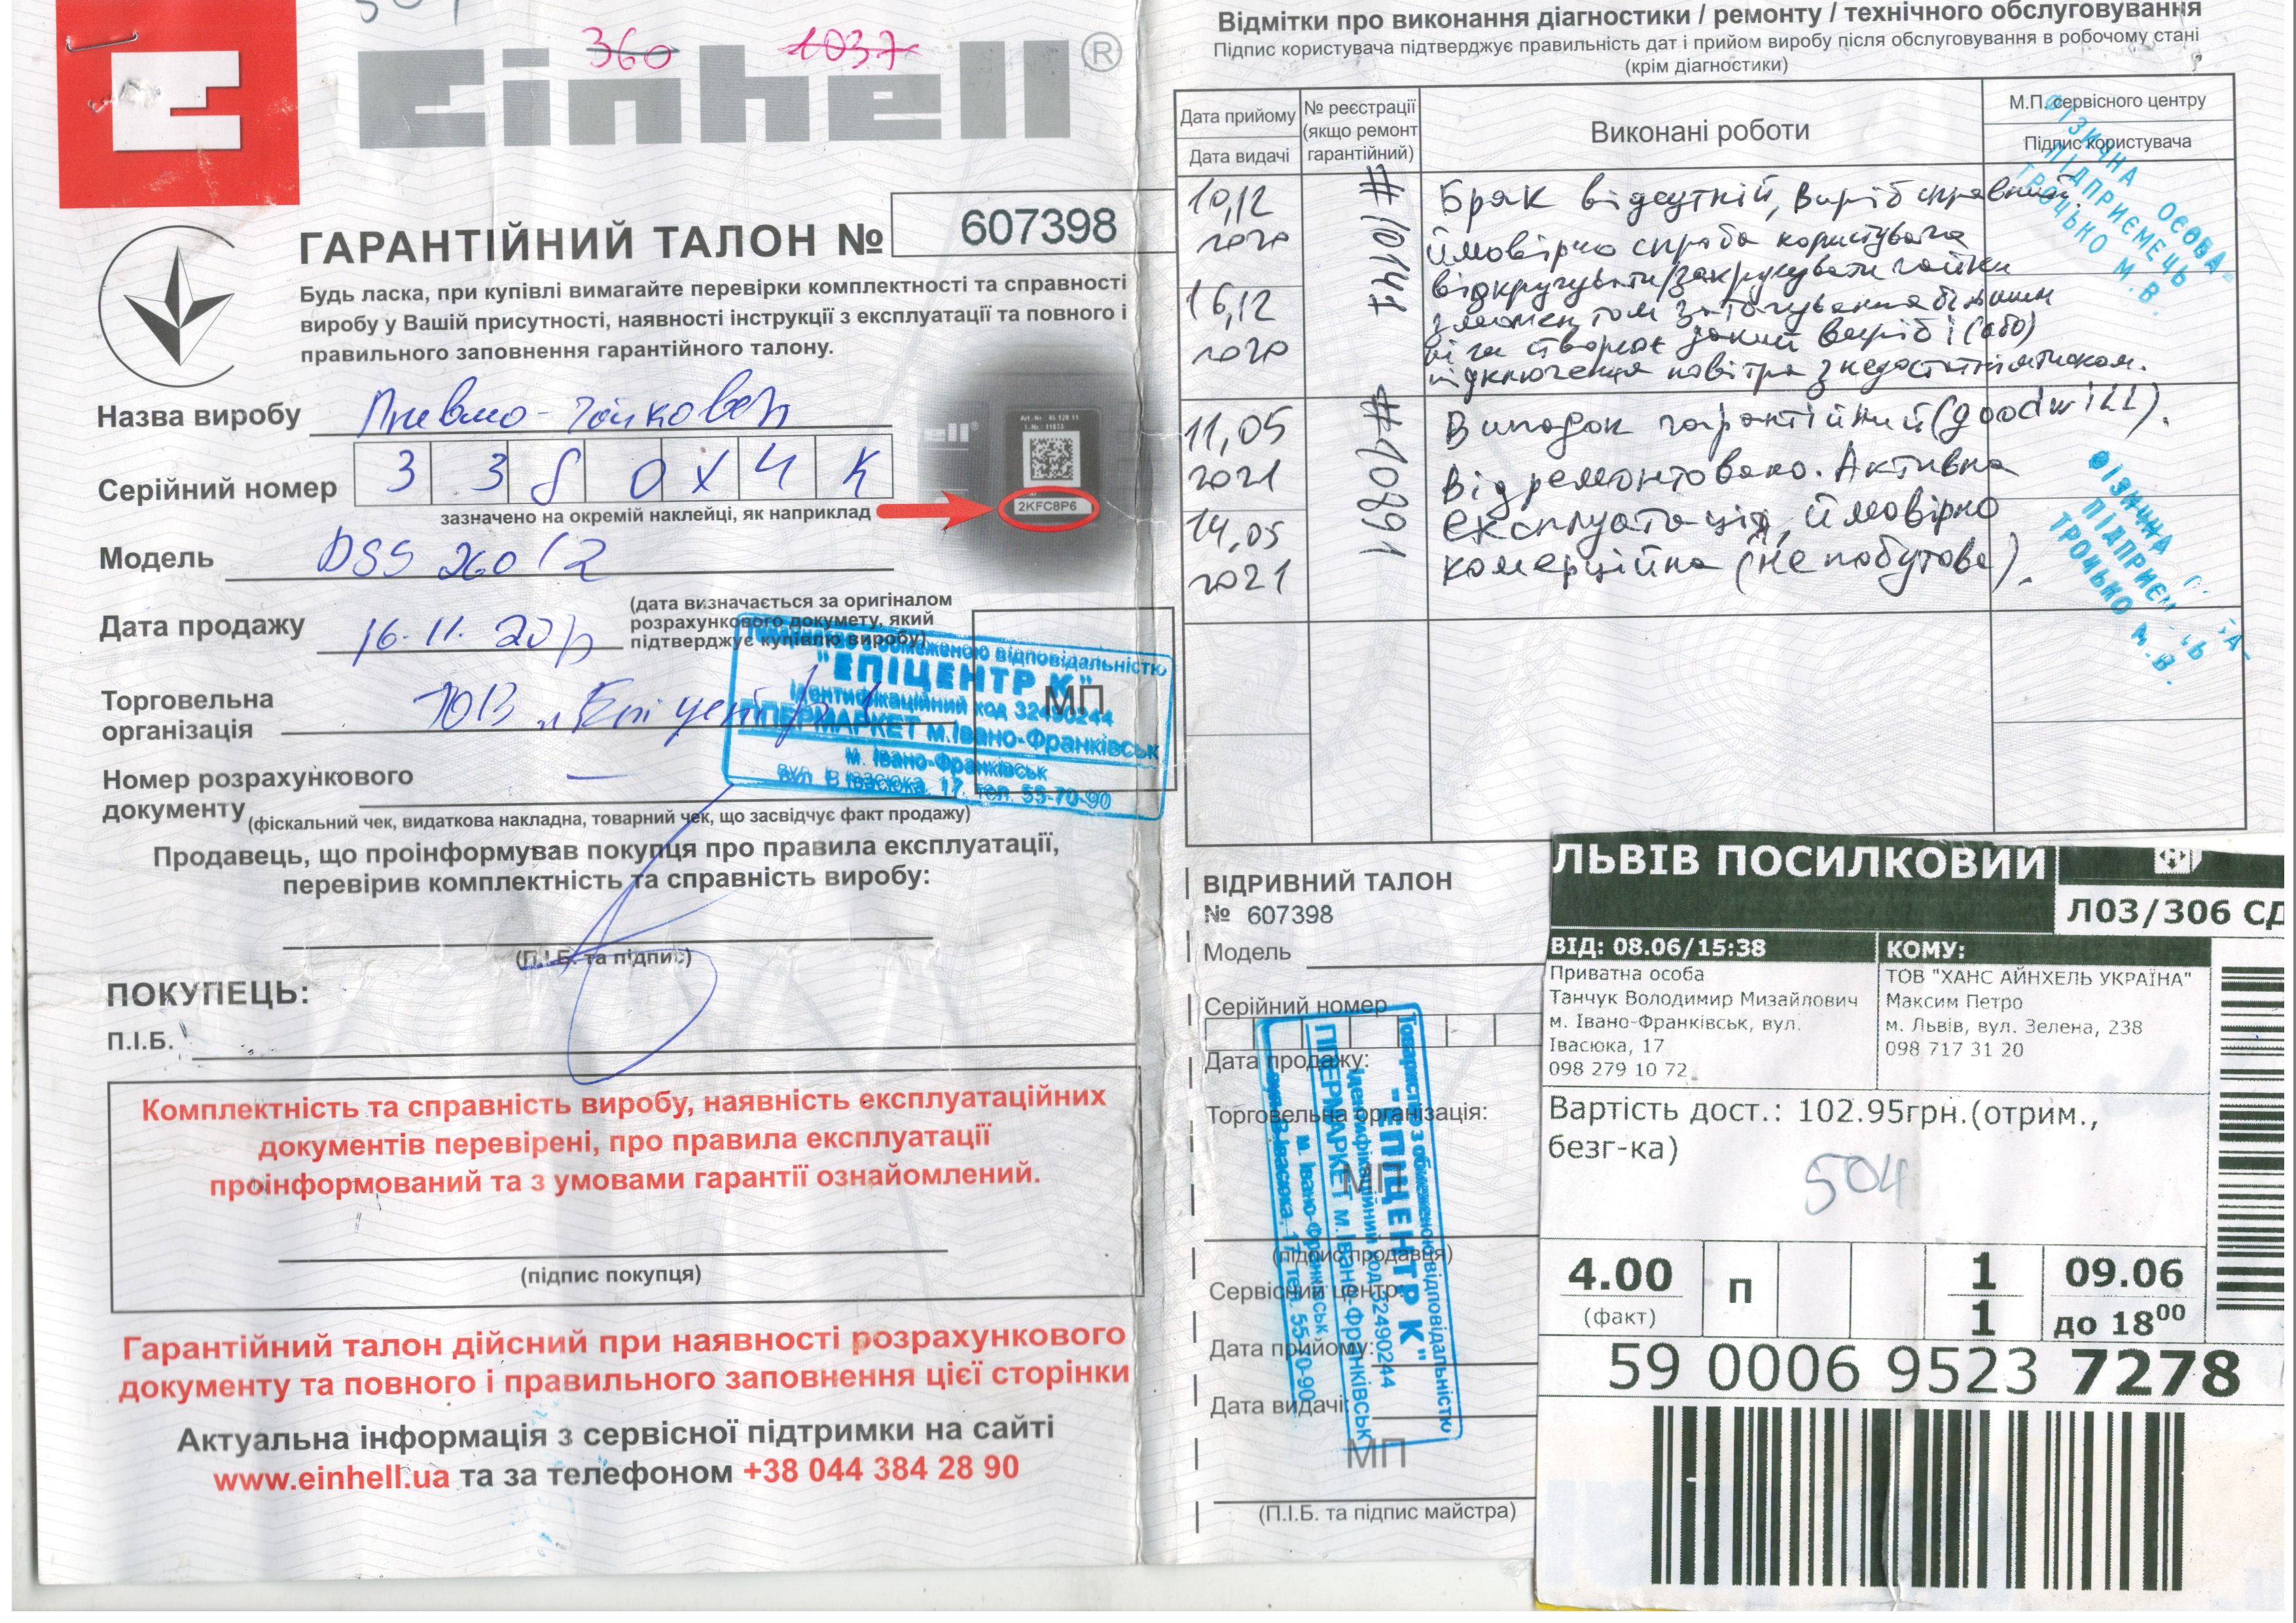 360 1037
Einhell®
ГАРАНТІЙНИЙ ТАЛОН № 607398
Будь ласка, при купівлі вимагайте перевірки комплектності та справності
виробу у Вашій присутності, наявності інструкції з експлуатації та повного і
правильного заповнення гарантійного талону.
Назва виробу Пневмо-гайковерт
Серійний номер 3 3 8 0 X 4 K
зазначено на окремій наклейці, як наприклад
2KFC8P6
Модель DSS 260/2
Дата продажу 16.11.20р
(дата визначається за оригіналом
розрахункового докумету, який
підтверджує купівлю виробу)
Торговельна
організація ТОВ "Епіцентр К"
МП
Товариство з обмеженою відповідальністю
"ЕПІЦЕНТР К"
Ідентифікаційний код 32490244
ГІПЕРМАРКЕТ м.Івано-Франківськ
м. Івано-Франківськ
вул. В.Івасюка, 17, тел. 55-70-90
Номер розрахункового
документу
(фіскальний чек, видаткова накладна, товарний чек, що засвідчує факт продажу)
Продавець, що проінформував покупця про правила експлуатації,
перевірив комплектність та справність виробу:
(П.І.Б. та підпис)
ПОКУПЕЦЬ:
П.І.Б.
Комплектність та справність виробу, наявність експлуатаційних
документів перевірені, про правила експлуатації
проінформований та з умовами гарантії ознайомлений.
(підпис покупця)
Гарантійний талон дійсний при наявності розрахункового
документу та повного і правильного заповнення цієї сторінки
Актуальна інформація з сервісної підтримки на сайті
www.einhell.ua та за телефоном +38 044 384 28 90
Відмітки про виконання діагностики / ремонту / технічного обслуговування
Підпис користувача підтверджує правильність дат і прийом виробу після обслуговування в робочому стані
(крім діагностики)
Дата прийому
Дата видачі
№ реєстрації
(якщо ремонт
гарантійний)
Виконані роботи
М.П. сервісного центру
Підпис користувача
10,12
2020
16,12
2020
#10147
Брак відсутній, виріб справний.
ймовірно спроба користувача
відкручувати/закручувати гайки
з моментом затягування більшим
ніж створює даний виріб і (або)
підключення повітря з недостатнім тиском.
ФІЗИЧНА ОСОБА-
ПІДПРИЄМЕЦЬ
ТРОЦЬКО М.В.
11,05
2021
14,05
2021
#10891
Випадок гарантійний (goodwill).
Відремонтовано. Активна
експлуатація, ймовірно
комерційна (не побутова).
ФІЗИЧНА
ПІДПРИЄМЕЦЬ
ТРОЦЬКО М.В.
ВІДРИВНИЙ ТАЛОН
№ 607398
Модель
Серійний номер
Дата продажу:
Торговельна організація:
МП
(підпис продавця)
Сервісний центр
Дата прийому:
Дата видачі:
МП
(П.І.Б. та підпис майстра)
Товариство з обмеженою відповідальністю
"ЕПІЦЕНТР К"
Ідентифікаційний код 32490244
ГІПЕРМАРКЕТ м.Івано-Франківськ
м. Івано-Франківськ
вул. В.Івасюка, 17, тел. 55-70-90
ЛЬВІВ ПОСИЛКОВИЙ
Л03/306 СД
ВІД: 08.06/15:38
Приватна особа
Танчук Володимир Мизайлович
м. Івано-Франківськ, вул.
Івасюка, 17
098 279 10 72
КОМУ:
ТОВ "ХАНС АЙНХЕЛЬ УКРАЇНА"
Максим Петро
м. Львів, вул. Зелена, 238
098 717 31 20
Вартість дост.: 102.95грн.(отрим.,
безг-ка)
504
4.00
(факт)
п
1
1
09.06
до 18⁰⁰
59 0006 9523 7278